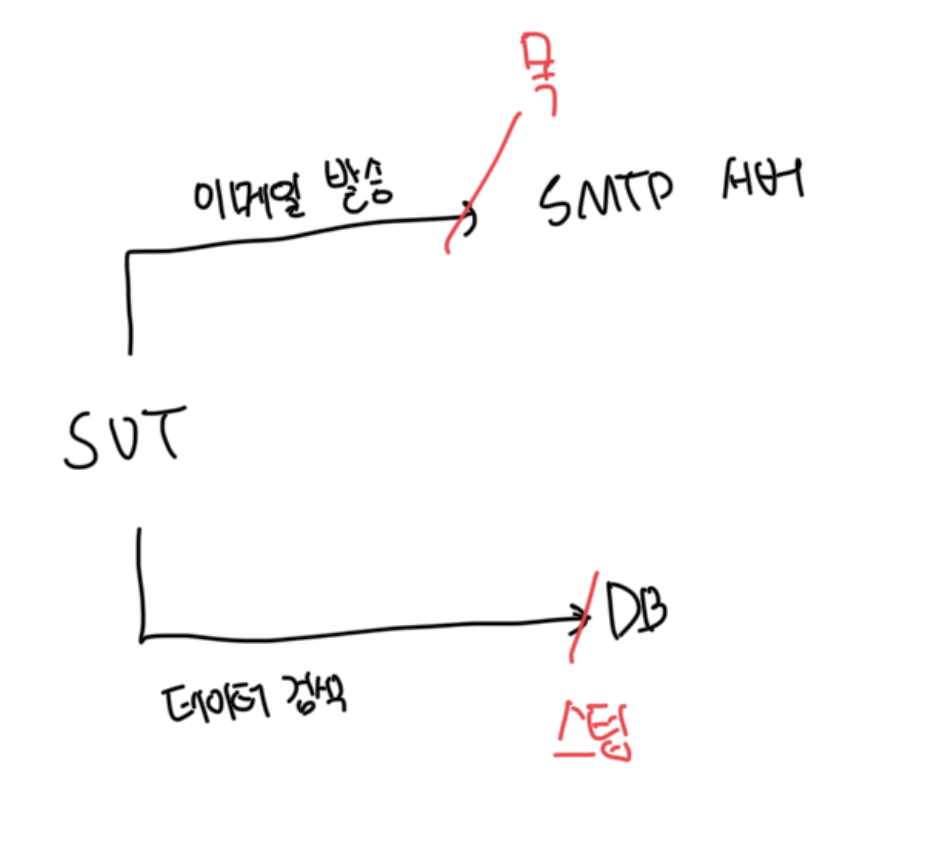 목
이메일 발송
SMTP 서버
SUT
DB
데이터 검색
스텁